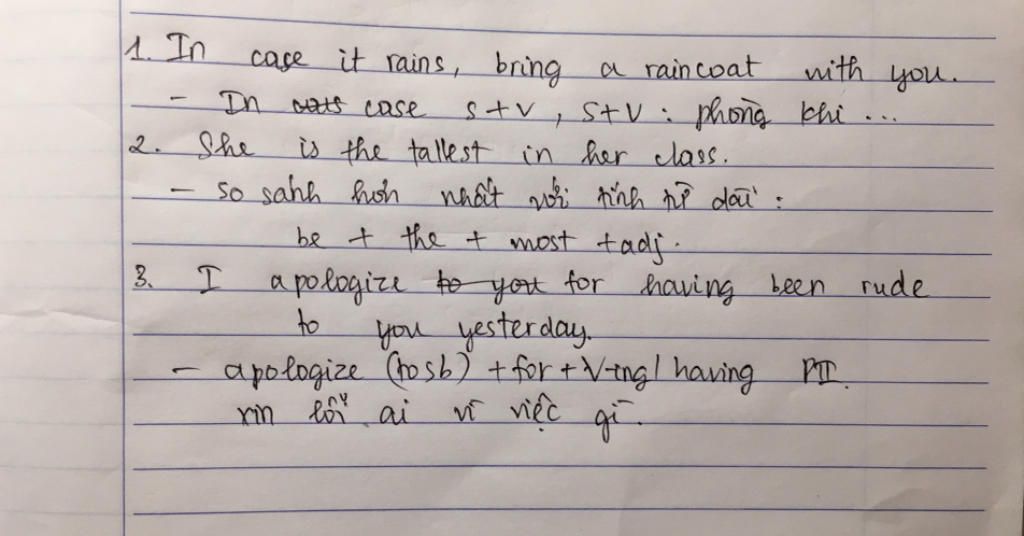 1. In case it rains, bring a raincoat with you.
- In case S+V, S+V: phòng khi ...
2. She is the tallest in her class.
- so sánh hơn nhất với tính từ dài:
be + the + most + adj.
3. I apologize to you for having been rude
to you yesterday.
- apologize (to sb) + for + V-ing/ having PII.
xin lỗi ai vì việc gì.